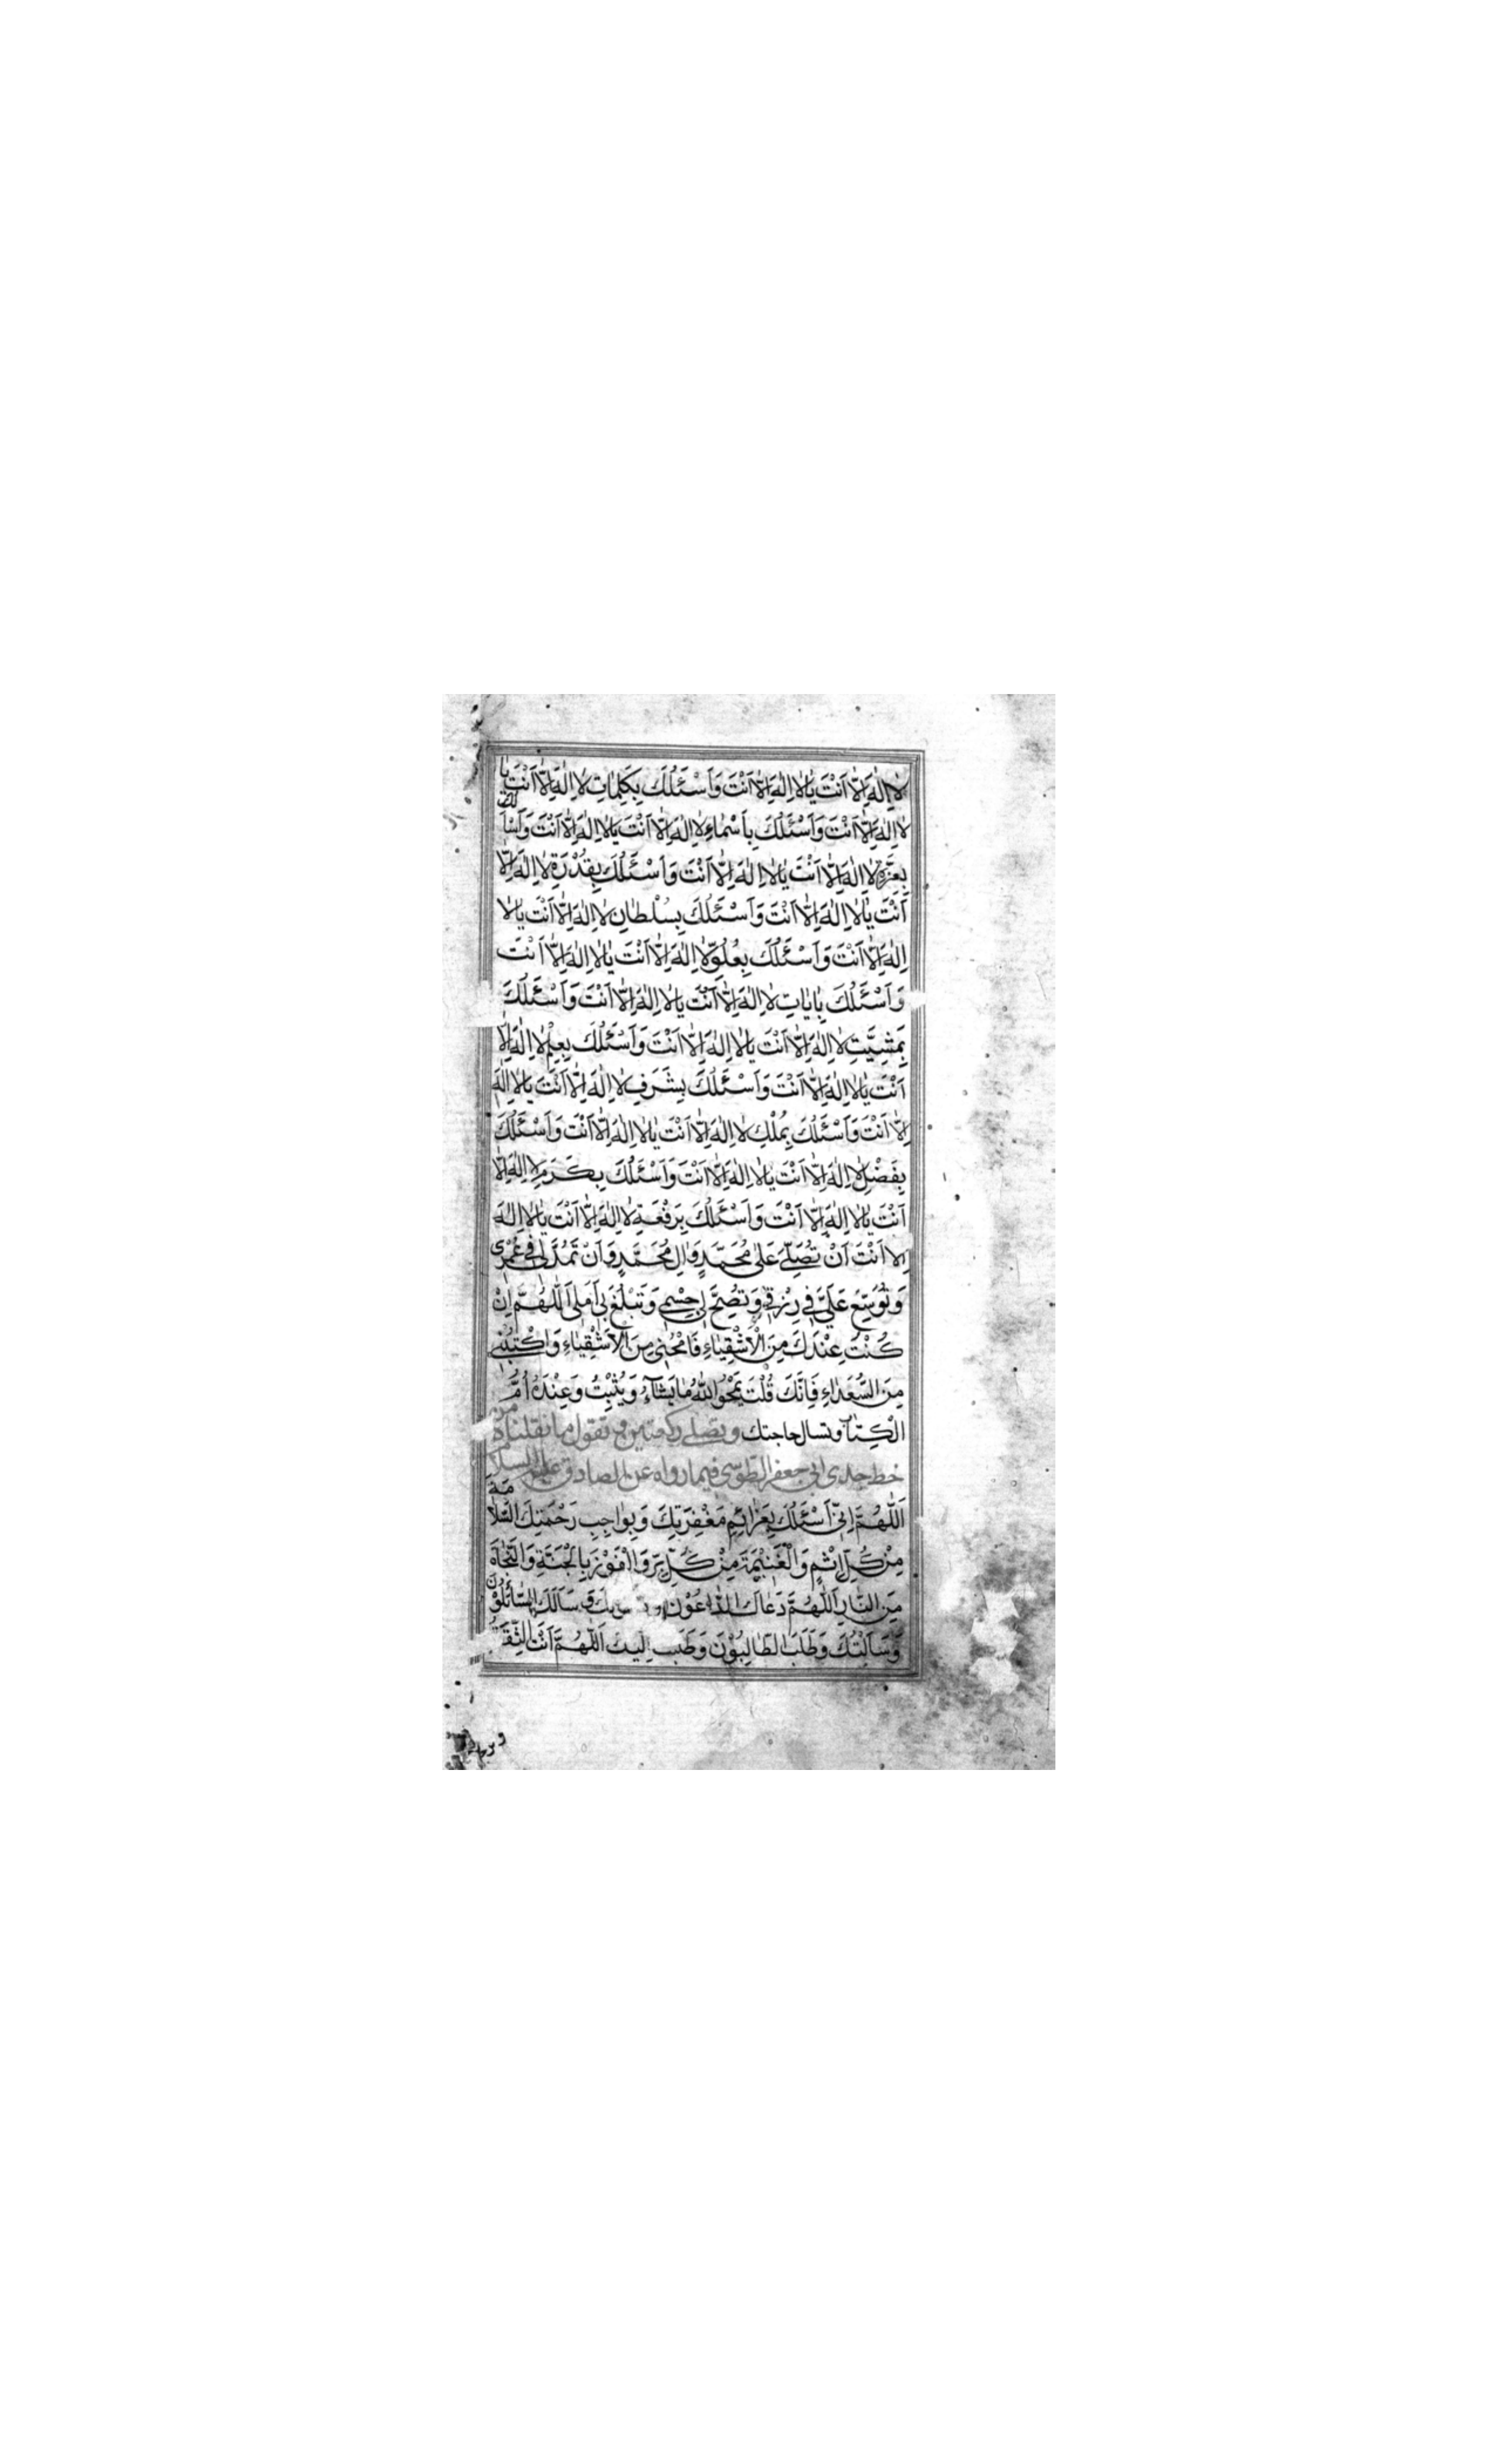 لَا اِلٰهَ اِلَّا اَنْتَ يَا لَا اِلٰهَ اِلَّا اَنْتَ وَاَسْئَلُكَ بِكَلِمَاتِ لَا اِلٰهَ اِلَّا اَنْتَ يَا
لَا اِلٰهَ اِلَّا اَنْتَ وَاَسْئَلُكَ بِاَسْمَاءِ لَا اِلٰهَ اِلَّا اَنْتَ يَا لَا اِلٰهَ اِلَّا اَنْتَ وَاَسْاَلُكَ
بِعِزَّةِ لَا اِلٰهَ اِلَّا اَنْتَ يَا لَا اِلٰهَ اِلَّا اَنْتَ وَاَسْئَلُكَ بِقُدْرَةِ لَا اِلٰهَ اِلَّا
اَنْتَ يَا لَا اِلٰهَ اِلَّا اَنْتَ وَاَسْئَلُكَ بِسُلْطَانِ لَا اِلٰهَ اِلَّا اَنْتَ يَا لَا
اِلٰهَ اِلَّا اَنْتَ وَاَسْئَلُكَ بِعُلُوِّ لَا اِلٰهَ اِلَّا اَنْتَ يَا لَا اِلٰهَ اِلَّا اَنْتَ
وَاَسْئَلُكَ بِاٰيَاتِ لَا اِلٰهَ اِلَّا اَنْتَ يَا لَا اِلٰهَ اِلَّا اَنْتَ وَاَسْئَلُكَ
بِمَشِيَّتِ لَا اِلٰهَ اِلَّا اَنْتَ يَا لَا اِلٰهَ اِلَّا اَنْتَ وَاَسْئَلُكَ بِعِلْمِ لَا اِلٰهَ اِلَّا
اَنْتَ يَا لَا اِلٰهَ اِلَّا اَنْتَ وَاَسْئَلُكَ بِشَرَفِ لَا اِلٰهَ اِلَّا اَنْتَ يَا لَا اِلٰهَ
اِلَّا اَنْتَ وَاَسْئَلُكَ بِمُلْكِ لَا اِلٰهَ اِلَّا اَنْتَ يَا لَا اِلٰهَ اِلَّا اَنْتَ وَاَسْئَلُكَ
بِفَضْلِ لَا اِلٰهَ اِلَّا اَنْتَ يَا لَا اِلٰهَ اِلَّا اَنْتَ وَاَسْئَلُكَ بِكَرَمِ لَا اِلٰهَ اِلَّا
اَنْتَ يَا لَا اِلٰهَ اِلَّا اَنْتَ وَاَسْئَلُكَ بِرَفْعَةِ لَا اِلٰهَ اِلَّا اَنْتَ يَا لَا اِلٰهَ
اِلَّا اَنْتَ اَنْ تُصَلِّيَ عَلٰى مُحَمَّدٍ وَاٰلِ مُحَمَّدٍ وَاَنْ تَمُدَّ لِي فِي عُمْرِي
وَتُوَسِّعَ عَلَيَّ فِي رِزْقِي وَتُصِحَّ لِي جِسْمِي وَتَبْلُغَ بِي اَمَلِي اَللّٰهُمَّ اِنْ
كُنْتَ عِنْدَكَ مِنَ الْاَشْقِيَاءِ فَامْحُنِي مِنَ الْاَشْقِيَاءِ وَاكْتُبْنِي
مِنَ السُّعَدَاءِ فَاِنَّكَ قُلْتَ يَمْحُوا اللّٰهُ مَا يَشَآءُ وَيُثْبِتُ وَعِنْدَهُ اُمُّ
الْكِتَابِ وتسال حاجتك وتصلى ركعتين وتقول مما نقلناه من
خط جدى ابى جعفر الطوسى فيما رواه عن الصادق عليه السلام
اَللّٰهُمَّ اِنِّي اَسْئَلُكَ بِعَزَائِمِ مَغْفِرَتِكَ وَبِوَاجِبِ رَحْمَتِكَ السَّلَامَةَ
مِنْ كُلِّ اِثْمٍ وَالْغَنِيمَةَ مِنْ كُلِّ بِرٍّ وَالْفَوْزَ بِالْجَنَّةِ وَالنَّجَاةَ
مِنَ النَّارِ اَللّٰهُمَّ دَعَاكَ الدَّاعُوْنَ وَسَاَلَكَ السَّائِلُوْنَ
وَسَاَلْتُكَ وَطَلَبَ الطَّالِبُوْنَ وَطَلَبْتُ اِلَيْكَ اَللّٰهُمَّ اَنْتَ الثِّقَةُ